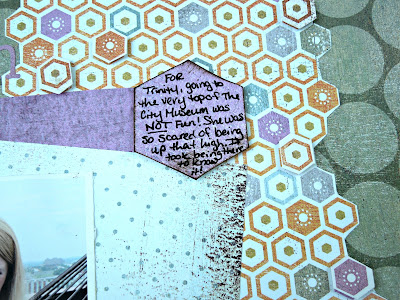 FOR
Trinity, going to
the very top of The
City Museum was
NOT Fun! She was
so scared of being
up that high. It
took being there
to know
it!